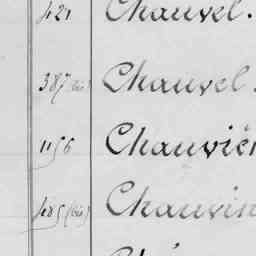 421 Chauvel.
387 (bis) Chauvel.
1156 Chauvièr
485 (bis) Chauvin